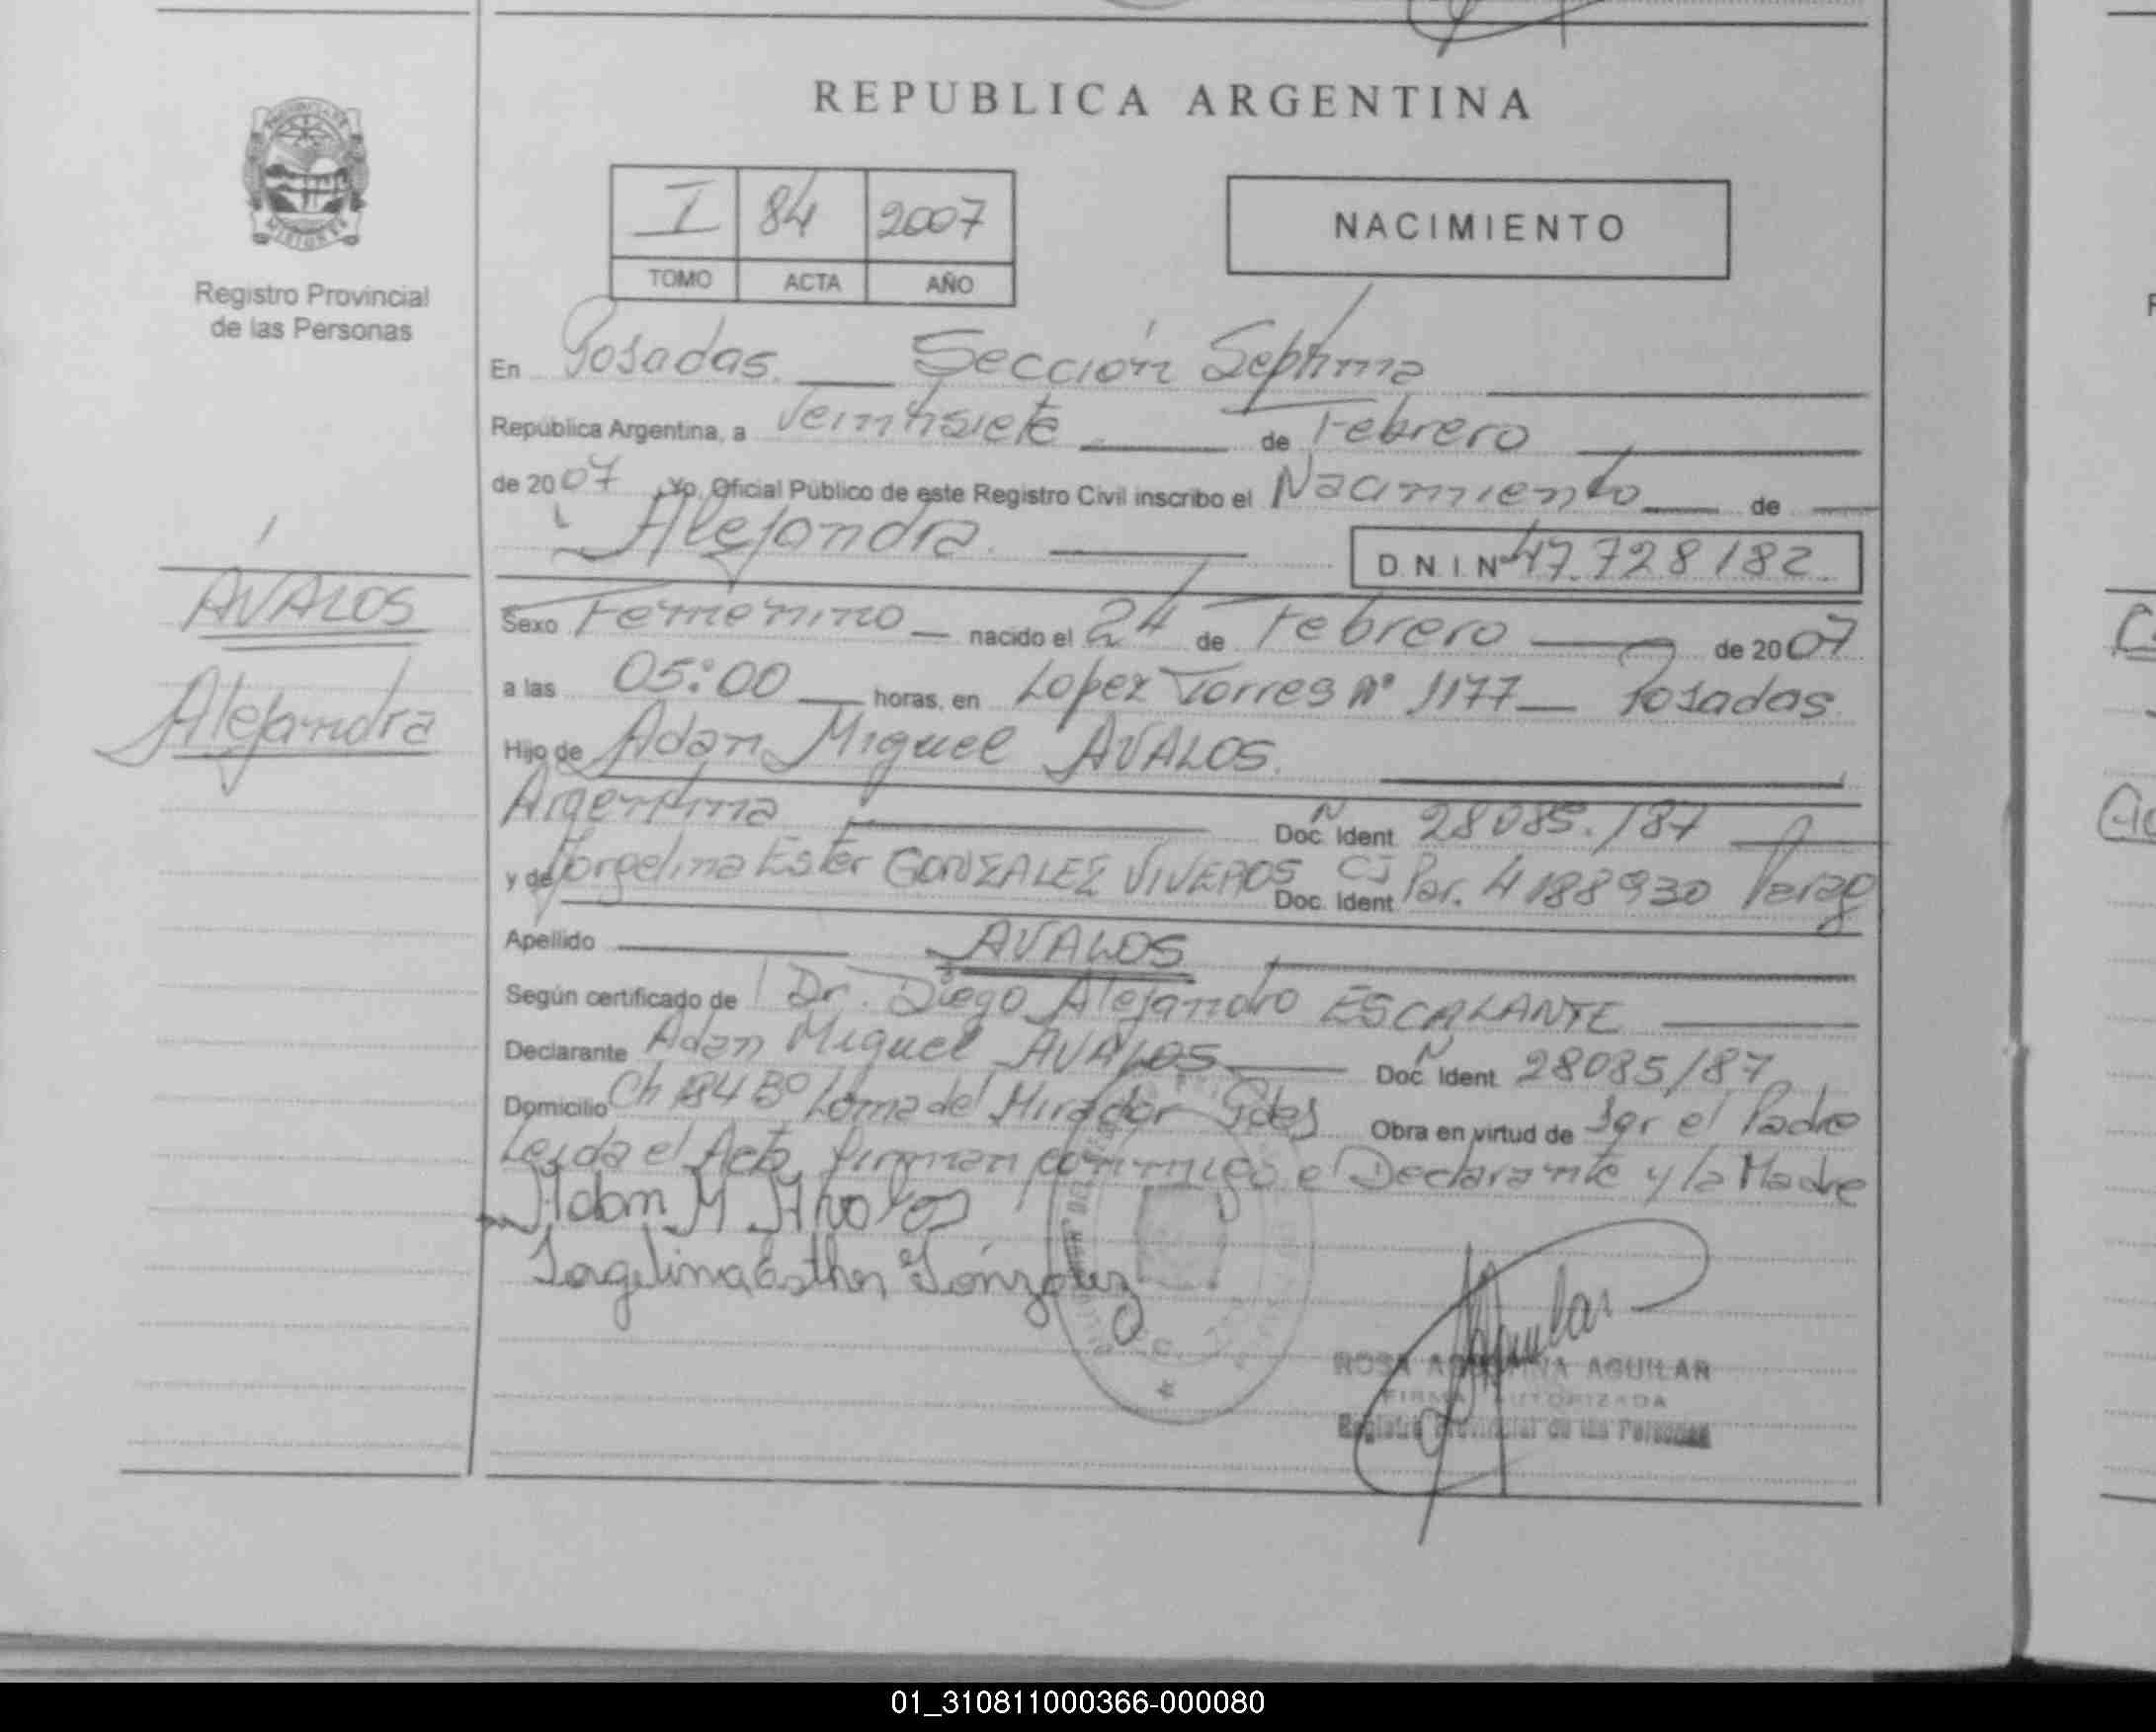 REPUBLICA ARGENTINA
I 84 2007
TOMO ACTA AÑO
NACIMIENTO
Registro Provincial
de las Personas
En Posadas. Sección Septima
República Argentina, a Veintisiete de Febrero
de 2007, Yo, Oficial Público de este Registro Civil inscribo el Nacimiento de
Alejandra. D.N.I. Nº 47.728182.
AVALOS
Alejandra
Sexo Femenino nacido el 24 de Febrero de 2007
a las 05:00 horas, en Lopez Torres Nº 1177 Posadas.
Hijo de Adan Miguel AVALOS.
Argentina Doc. Ident. 28085.187
y de Jorgelina Ester GONZALEZ VIVEROS Doc. Ident. CI Par. 4188930
Apellido AVALOS
Según certificado de Dr. Diego Alejandro ESCALANTE
Declarante Adan Miguel AVALOS Doc. Ident. 28085187
Domicilio Ch 184 Bº Loma del Mirador Pdas Obra en virtud de ser el Padre
Leida el Acta, firman conmigo el Declarante y la Madre
Adam M Avalos
Jorgelina Esther Gónzalez
Aguilar
ROSA AGUILAR
FIRMA AUTORIZADA
Registro Provincial de las Personas
01_310811000366-000080